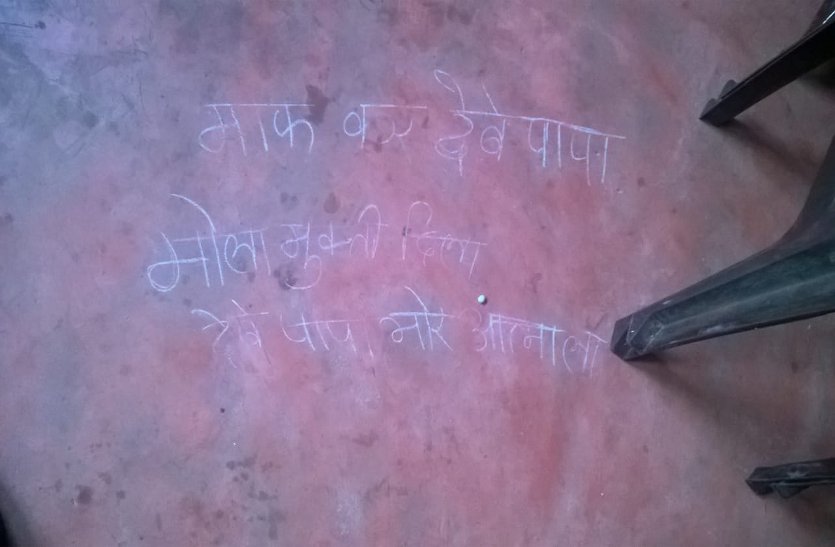 माफ कर देबे पापा
मोला मुक्ती दिला
देबे पापा मोर आत्माला